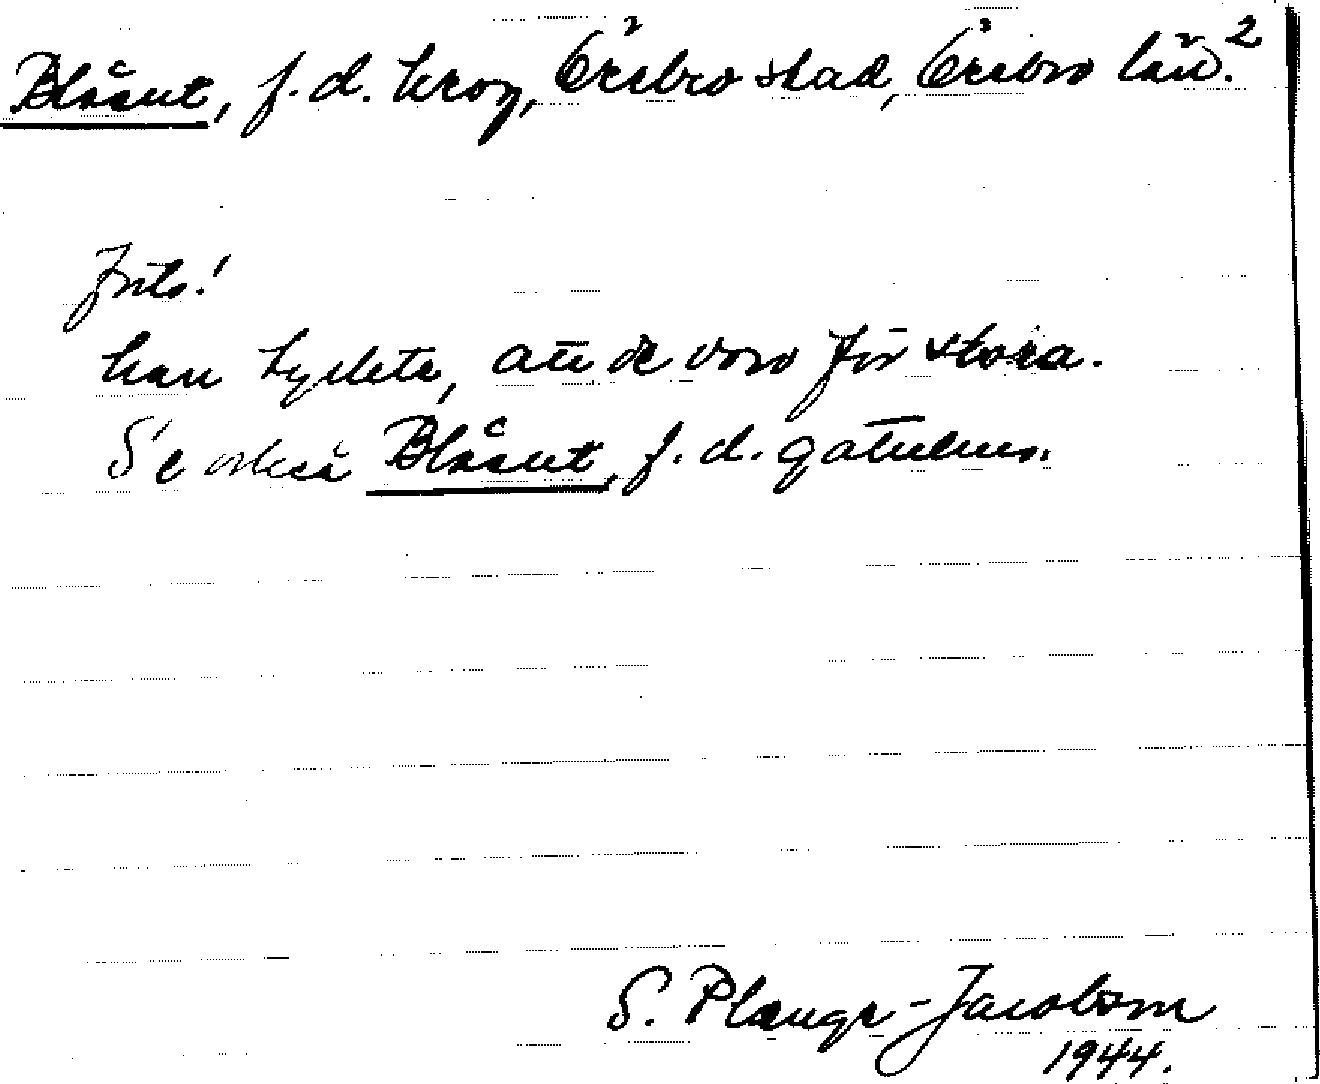 Blåsut, f.d. krog, Örebro stad, Örebro län. 2
han tyckte, att de voro för stora.
Se också Blåsut, f.d. gatuhus.
S. Plænge-Jacobson
1944.